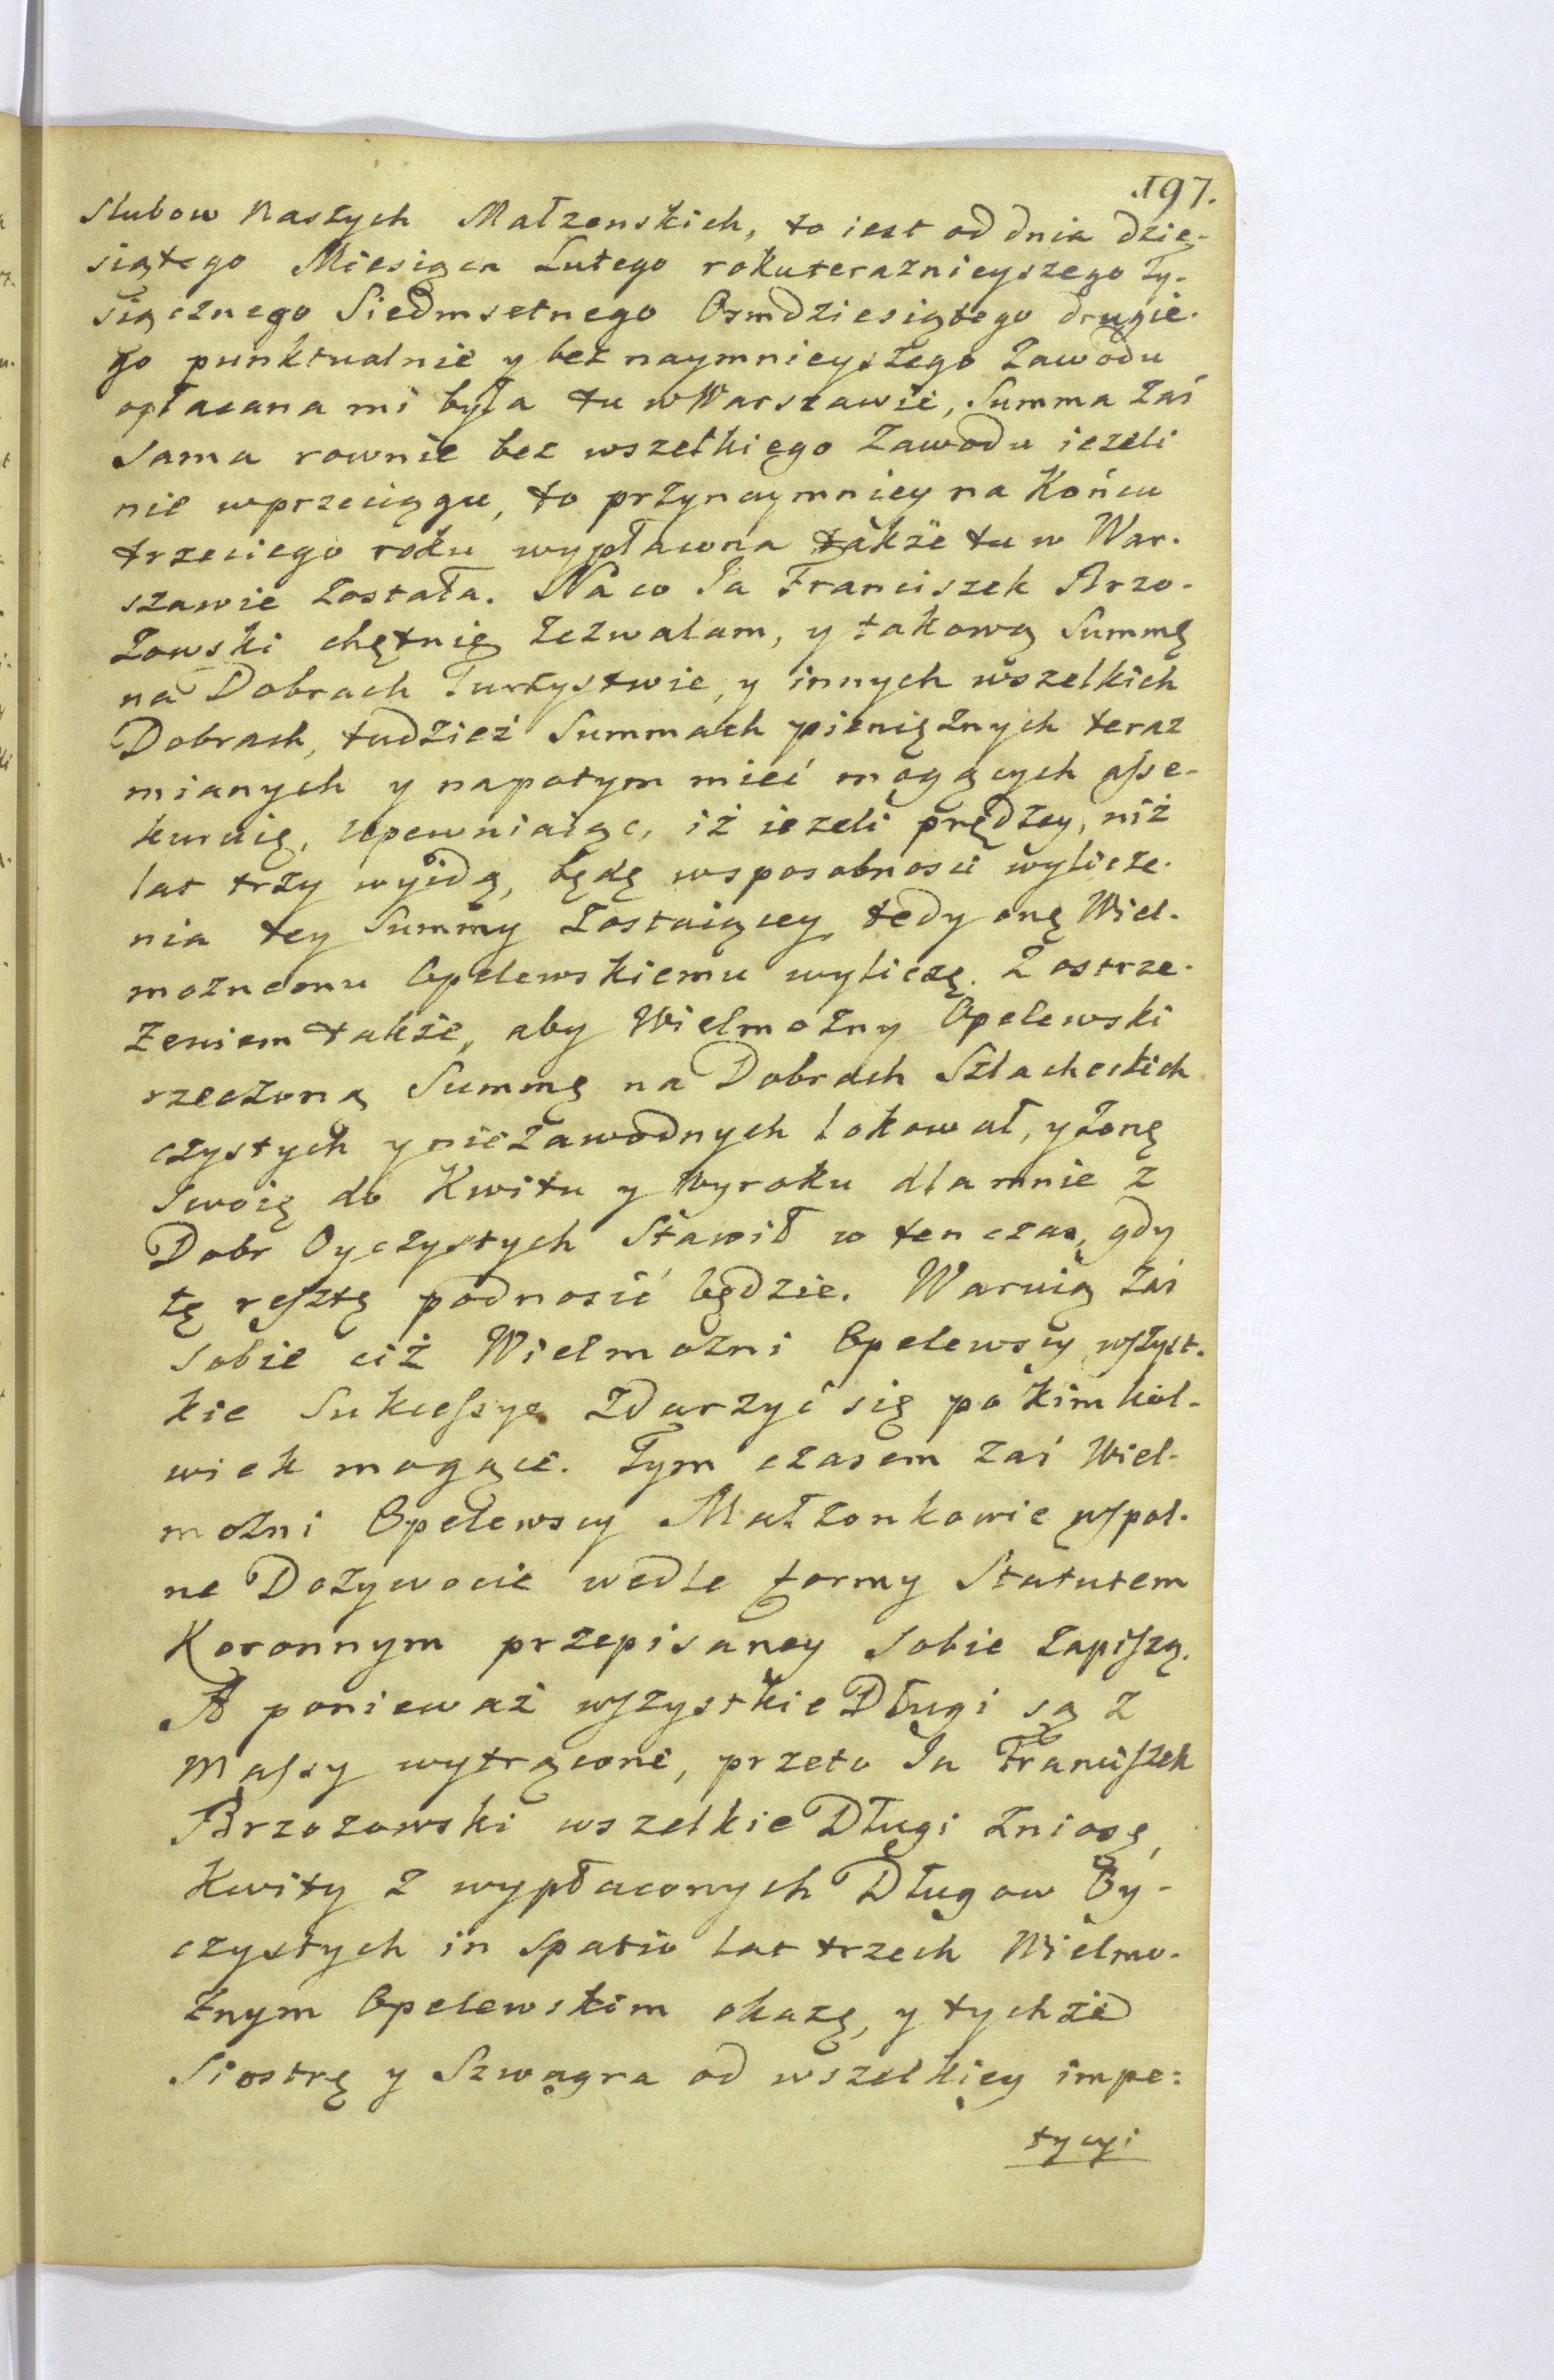 197.
Slubow Naszych Małzenskich, to iest od dnia dzie-
siątego Miesiąca Lutego roku teraznieyszego Ty-
siącznego Siedmsetnego Osmdziesiątego drugie-
go punktualnie y bez naymnieyszego Zawodu
opłacana mi była tu w Warszawie, Summa Zaś
Sama rownie bez wszelkiego Zawodu ieżeli
nie wprzeciągu, to przynaymniey na Końcu
trzeciego roku wypłacona także tu w War-
szawie Została. Na co Ja Franciszek Brzo-
zowski chętnie Zezwalam, y takową Summę
na Dobrach Turżystwie, y innych wszelkich
Dobrach, tudzież Summach pieniężnych teraz
mianych y napotym mieć mogących asse-
kuruię, upewniaiąc, iż ieżeli prędzey, niż
lat trzy wyidą, będę wsposobności wylicze-
nia tey Summy Zostaiącey, tedy onę Wiel-
możnemu Opelewskiemu wyliczę. Z ostrze-
żeniem także, aby Wielmożny Opelewski
rzeczoną Summę na Dobrach Szlacheckich
czystych y niezawodnych Lokował, y żonę
Swoię do Kwitu y Wyroku dla mnie z
Dobr Oyczystych Stawił w ten czas, gdy
tę resztę podnosić będzie. Waruią Zaś
Sobie ciż Wielmożni Opelewscy wszyst-
kie Sukcessye Zdarzyć się po kimkol-
wiek mogące. Tym czasem Zaś Wiel-
możni Opelewscy Małżonkowie wspol-
ne Dożywocie wedle formy Statutem
Koronnym przepisaney Sobie Zapiszą.
A ponieważ wszystkie Długi są z
Massy wytrącone, przeto Ja Franciszek
Brzozowski wszelkie Długi Zniosę,
Kwity z wypłaconych Długow Oy-
czystych in spatio lat trzech Wielmo-
żnym Opelewskim okażę, y tychże
Siostrę y Szwagra od wszelkiey impe:
tycyi